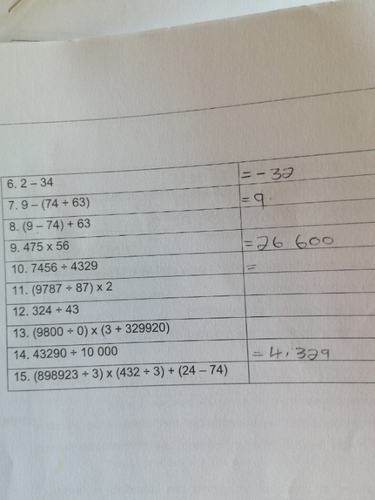 6. 2 – 34 = - 32
7. 9 – (74 + 63) = 9.
8. (9 – 74) + 63
9. 475 x 56 = 26 600
10. 7456 ÷ 4329 =
11. (9787 ÷ 87) x 2
12. 324 ÷ 43
13. (9800 ÷ 0) x (3 + 329920)
14. 43290 ÷ 10 000 = 4,329
15. (898923 ÷ 3) x (432 ÷ 3) + (24 – 74)